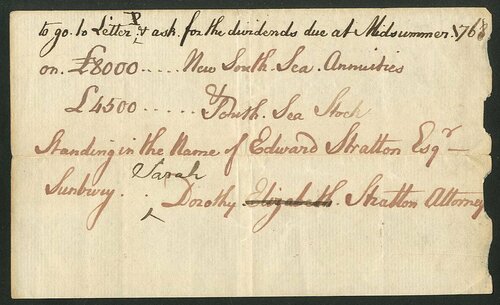 P
to go to Letter & ask for the dividends due at Midsummer 1768
on £8000 ..... New South Sea Annuities
£4500 ..... South Sea Stock
Standing in the Name of Edward Stratton Esqr
Sarah
Sunbury . . Dorothy Elizabeth. Stratton Attorney